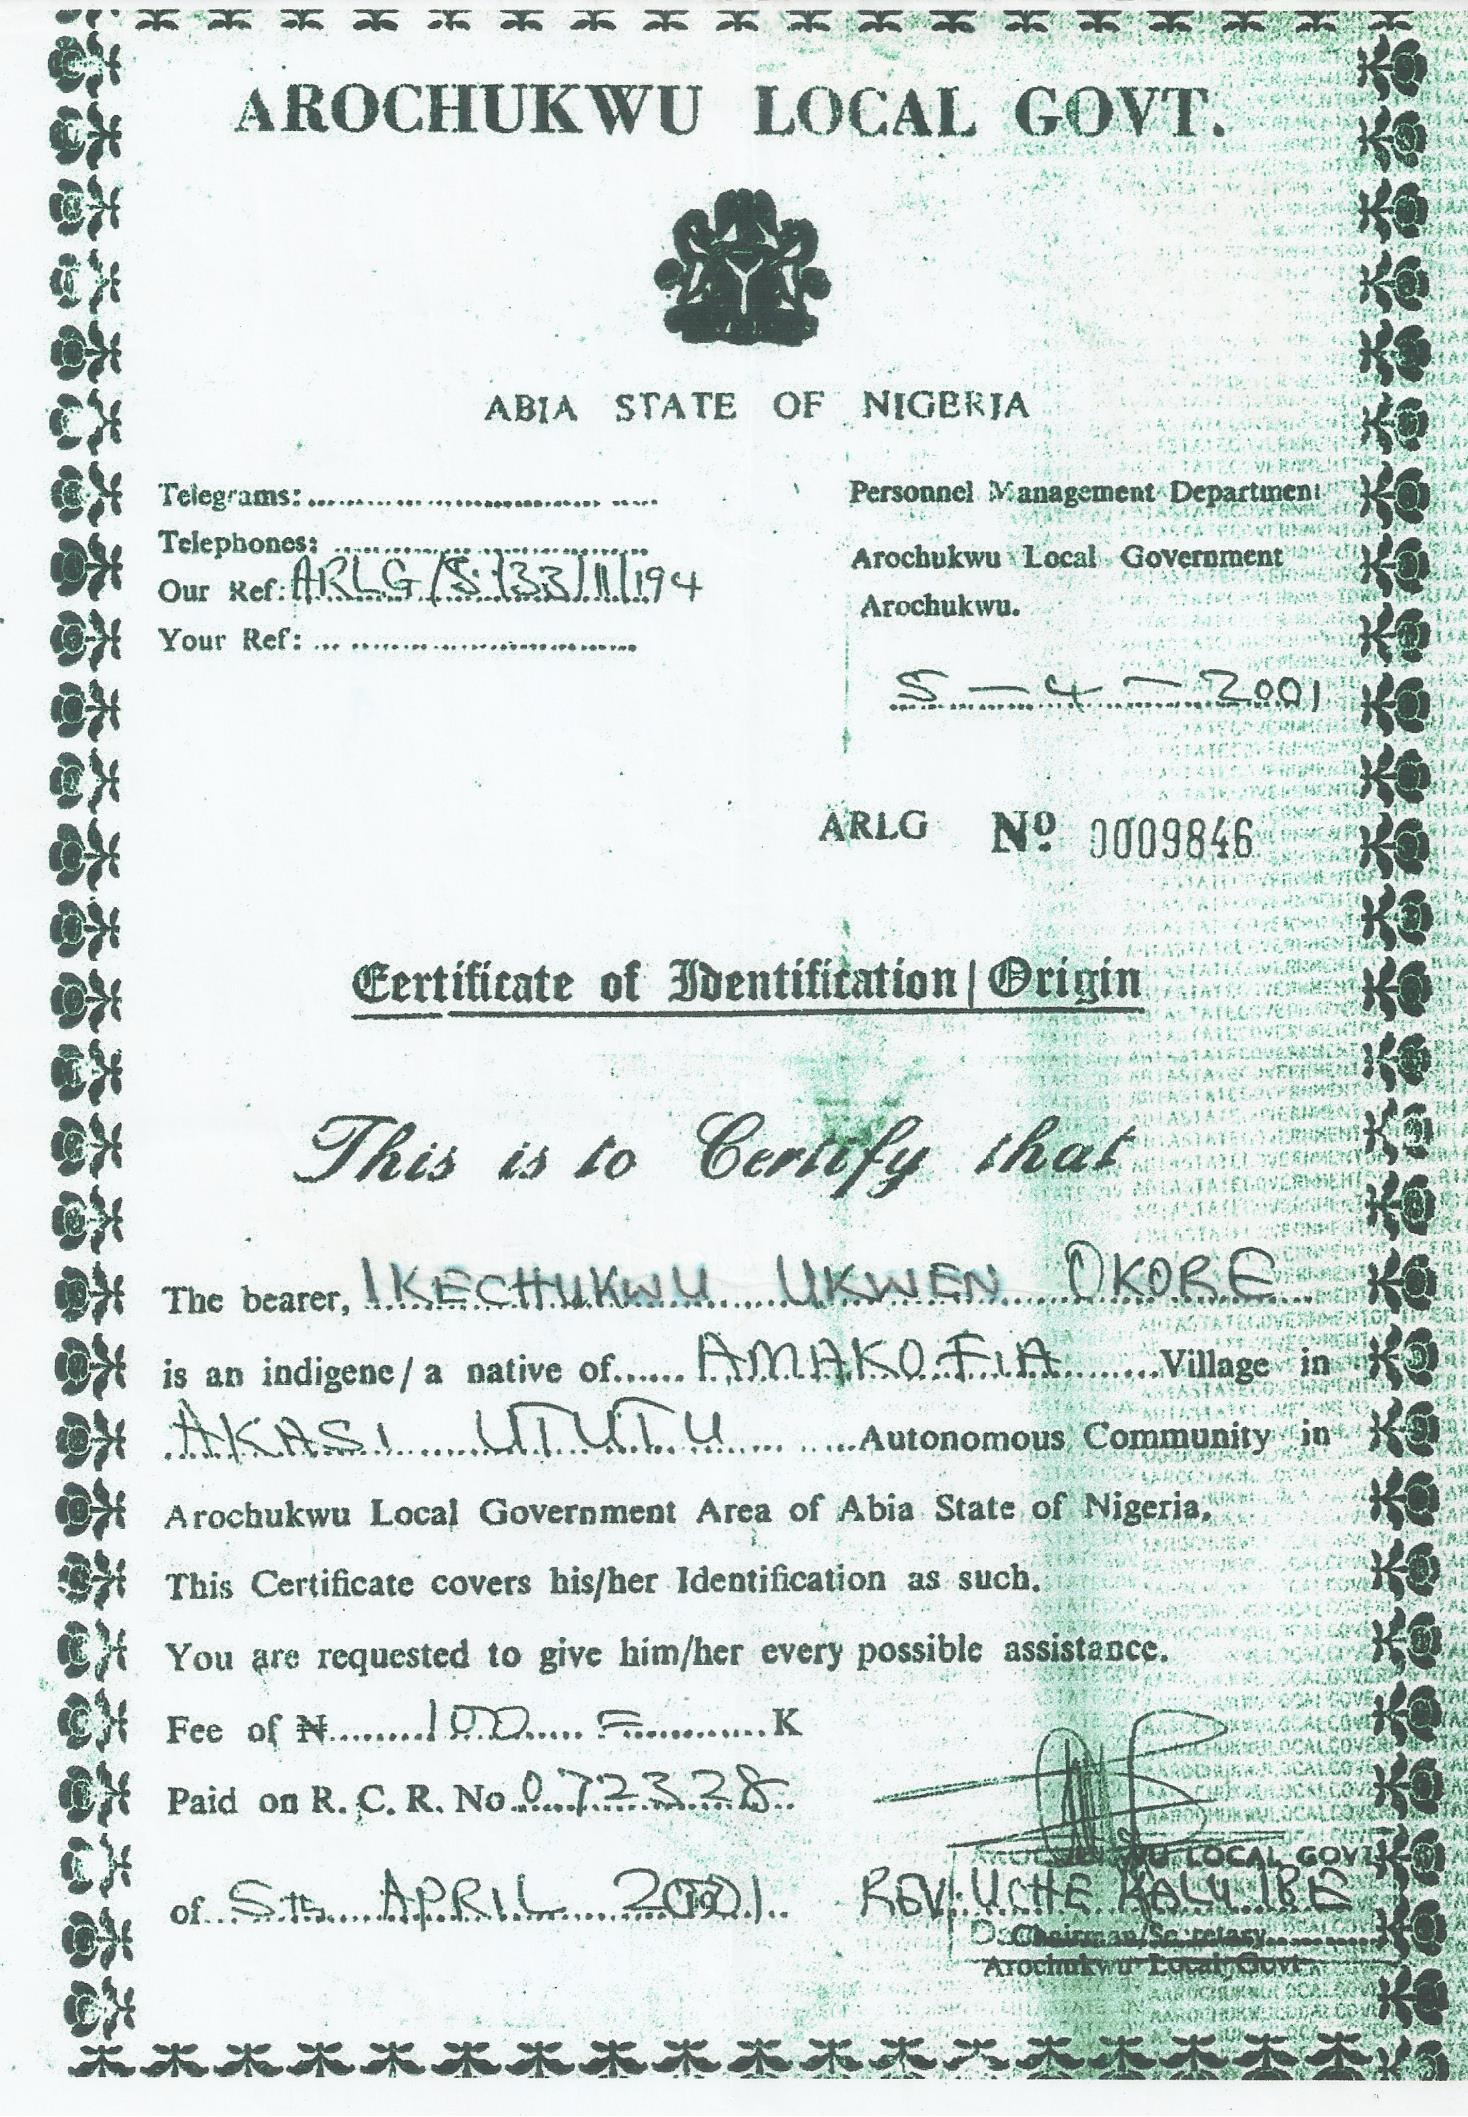 AROCHUKWU LOCAL GOVT.
ABIA STATE OF NIGERIA
Telegrams:
Telephones:
Our Ref: ARLG/S.133/11/194
Your Ref:
Personnel Management Department
Arochukwu Local Government
Arochukwu.
5 - 4 - 2001
ARLG No. 0009846
Certificate of Identification/Origin
This is to Certify that
The bearer, IKECHUKWU UKWEN OKORE
is an indigene/a native of AMAKOFIA Village in
AKASI UTUTU Autonomous Community in
Arochukwu Local Government Area of Abia State of Nigeria.
This Certificate covers his/her Identification as such.
You are requested to give him/her every possible assistance.
Fee of ₦ 100 = K
Paid on R. C. R. No 072328
of 5th APRIL 2001
LOCAL GOVT
REV. UCHE KALU IBE
Chairman/Secretary
Arochukwu Local Govt